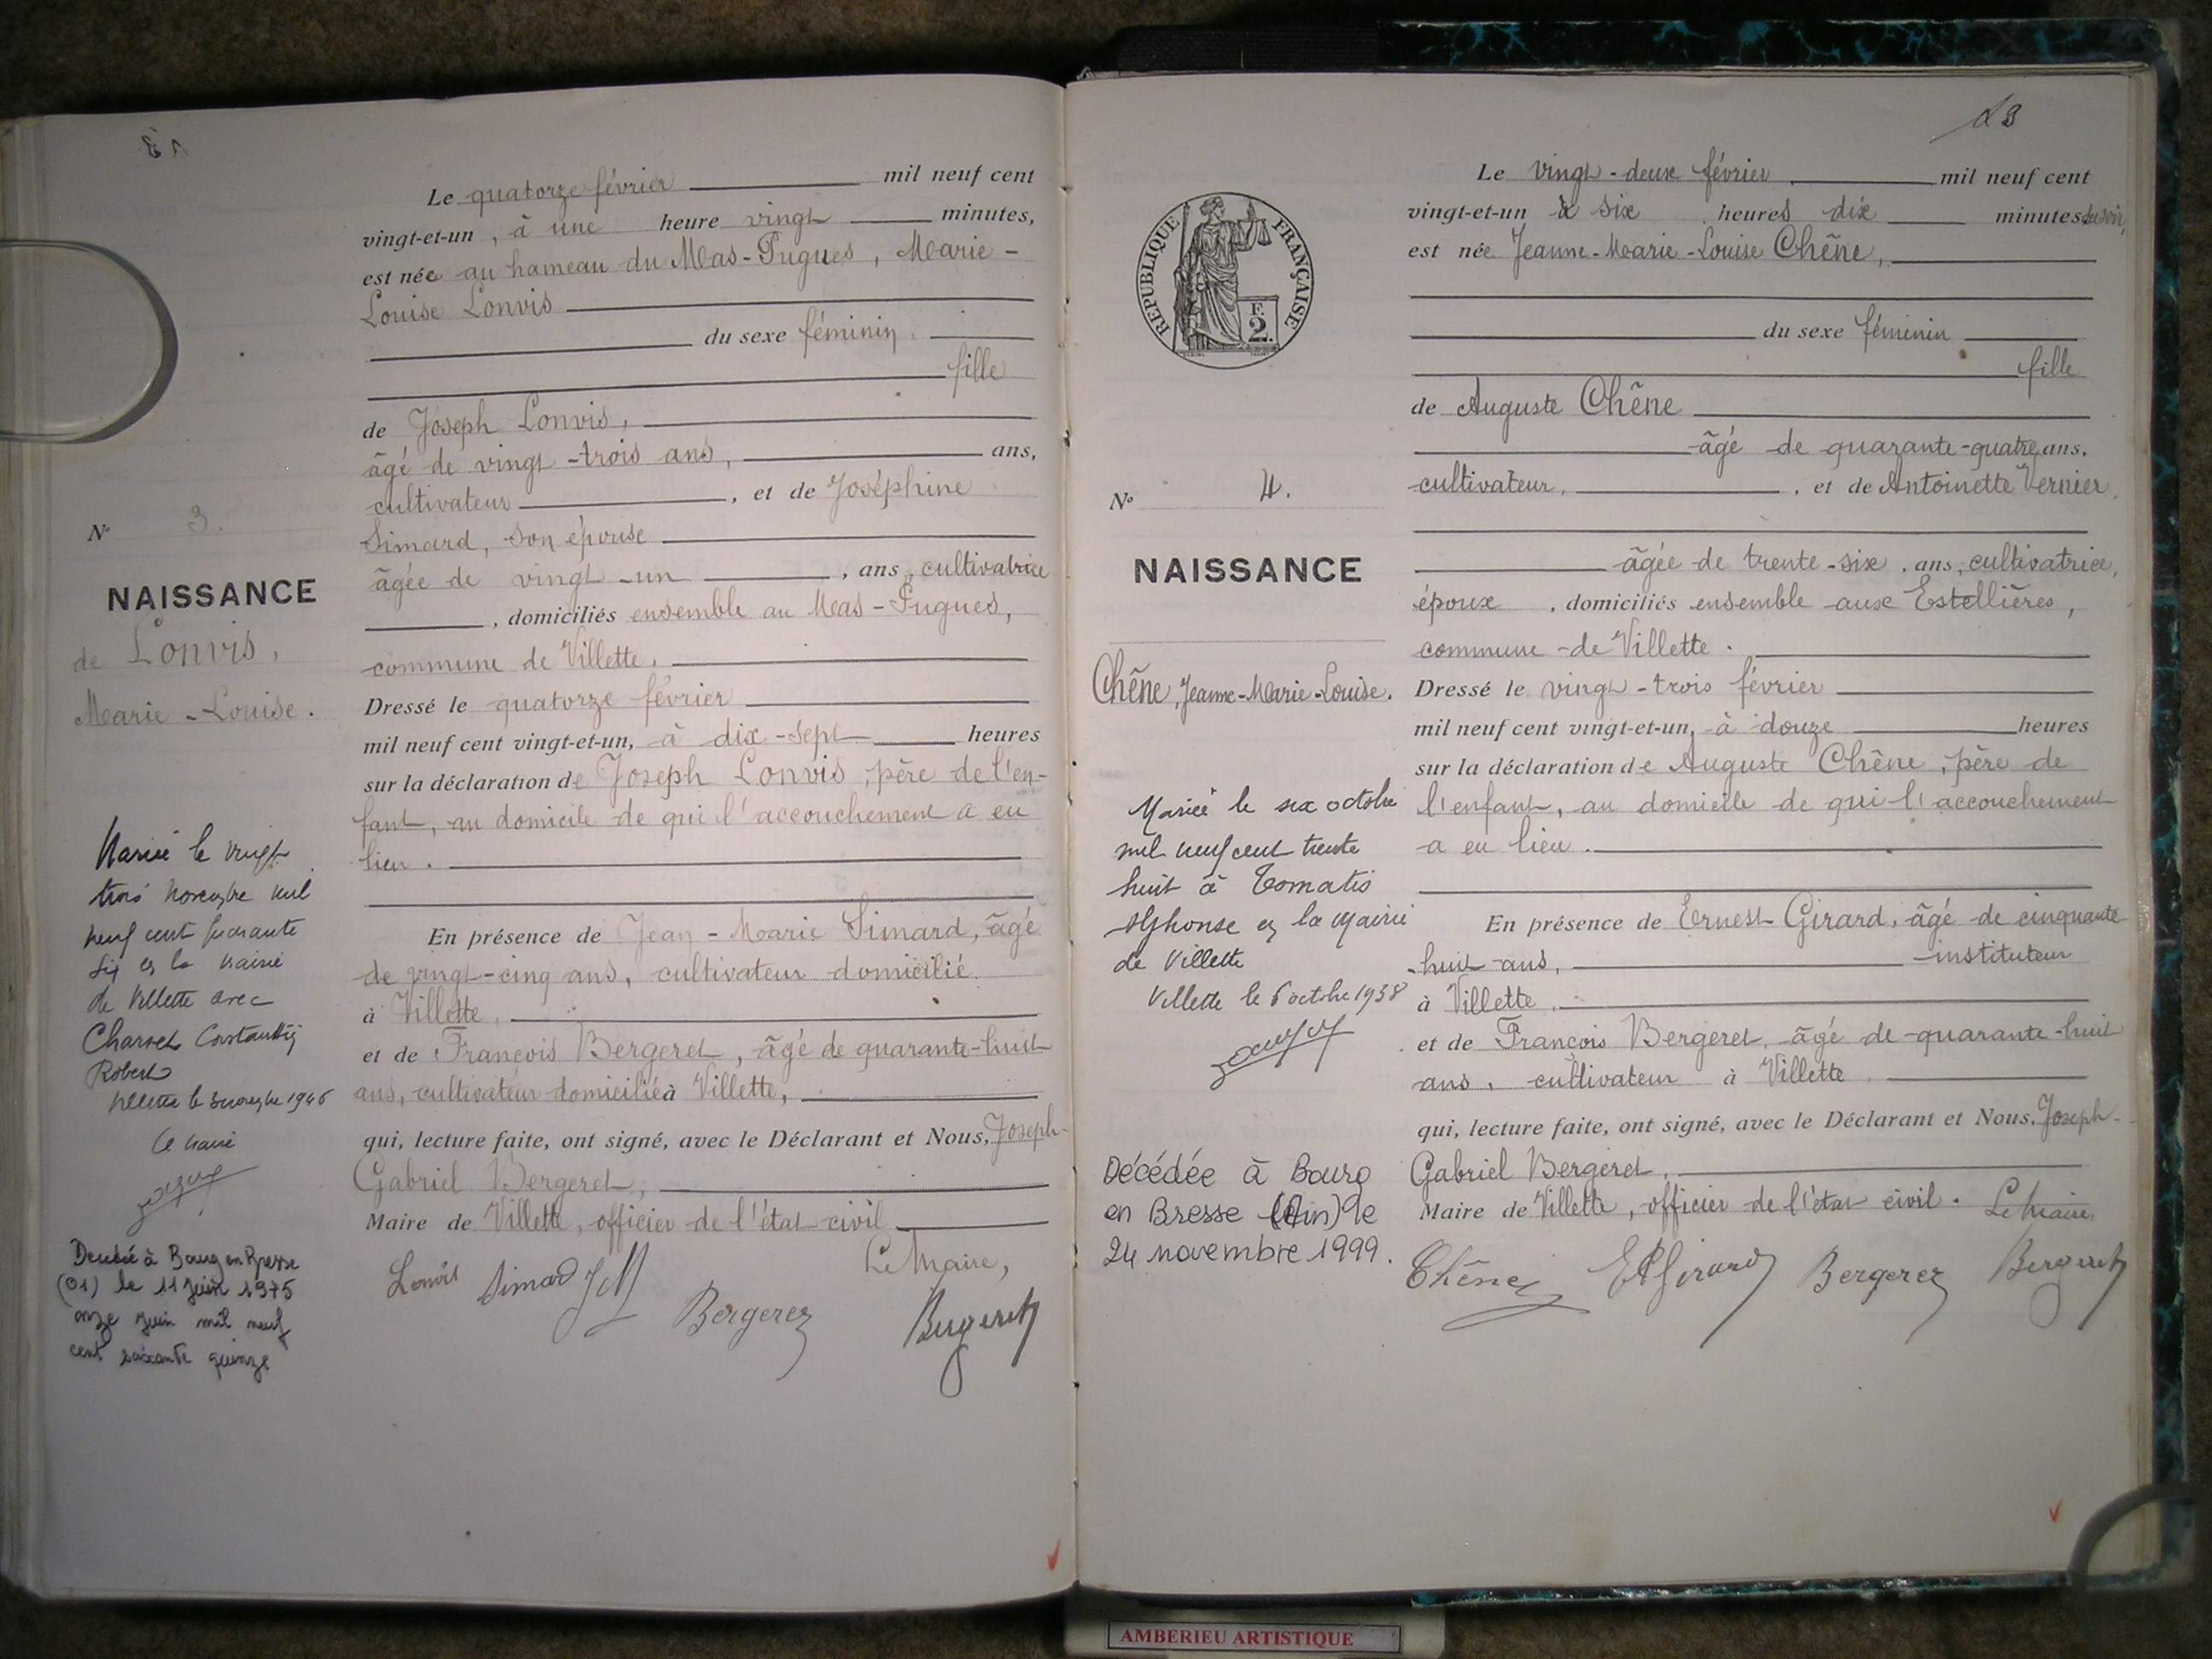 Le quatorze février mil neuf cent
vingt-et-un, à une heure vingt minutes,
est née au hameau du Mas-Pugues, Marie-
Louise Lonvis
du sexe féminin.
fille
de Joseph Lonvis,
âgé de vingt-trois ans, ans,
cultivateur, et de Joséphine
Simard, son épouse
âgée de vingt-un, ans, cultivatrice
, domiciliés ensemble au Mas-Pugues,
commune de Villette.
Dressé le quatorze février
mil neuf cent vingt-et-un, à dix-sept heures
sur la déclaration de Joseph Lonvis, père de l'en-
fant, au domicile de qui l'accouchement a eu
lieu.
En présence de Jean-Marie Simard, âgé
de vingt-cinq ans, cultivateur domicilié
à Villette,
et de François Bergeret, âgé de quarante-huit
ans, cultivateur domicilié à Villette,
qui, lecture faite, ont signé, avec le Déclarant et Nous, Joseph-
Gabriel Bergeret,
Maire de Villette, officier de l'état civil
Le Maire,
Lonvis Simard JM Bergeret Bergeret
N° 3.
NAISSANCE
de Lonvis,
Marie-Louise.
Mariée le vingt
trois novembre mil
neuf cent quarante
six en la mairie
de Villette avec
Charvet Constantin
Robert
Villette le novembre 1946
Le maire
Décédée à Bourg en Bresse
(01) le 11 juin 1975
onze juin mil neuf
cent soixante quinze
13
REPUBLIQUE FRANÇAISE
F.
2.
Le vingt-deux février mil neuf cent
vingt-et-un à six heures dix minutes du soir,
est née Jeanne-Marie-Louise Chêne,
du sexe féminin
fille
de Auguste Chêne
âgé de quarante-quatre ans,
cultivateur, et de Antoinette Vernier,
âgée de trente-six, ans, cultivatrice,
époux, domiciliés ensemble aux Estellières,
commune de Villette.
Dressé le vingt-trois février
mil neuf cent vingt-et-un, à douze heures
sur la déclaration de Auguste Chêne, père de
l'enfant, au domicile de qui l'accouchement
a eu lieu.
En présence de Ernest Girard, âgé de cinquante-
huit ans, instituteur
à Villette,
et de François Bergeret, âgé de quarante-huit
ans, cultivateur à Villette
qui, lecture faite, ont signé, avec le Déclarant et Nous, Joseph-
Gabriel Bergeret,
Maire de Villette, officier de l'état civil. Le Maire,
Chêne EGirard Bergeret Bergeret
N° 4.
NAISSANCE
Chêne, Jeanne-Marie-Louise.
Mariée le six octobre
mil neuf cent trente
huit à Tomatis
Alphonse en la Mairie
de Villette
Villette le 6 octobre 1938
Décédée à Bourg
en Bresse (Ain) le
24 novembre 1999.
AMBERIEU ARTISTIQUE